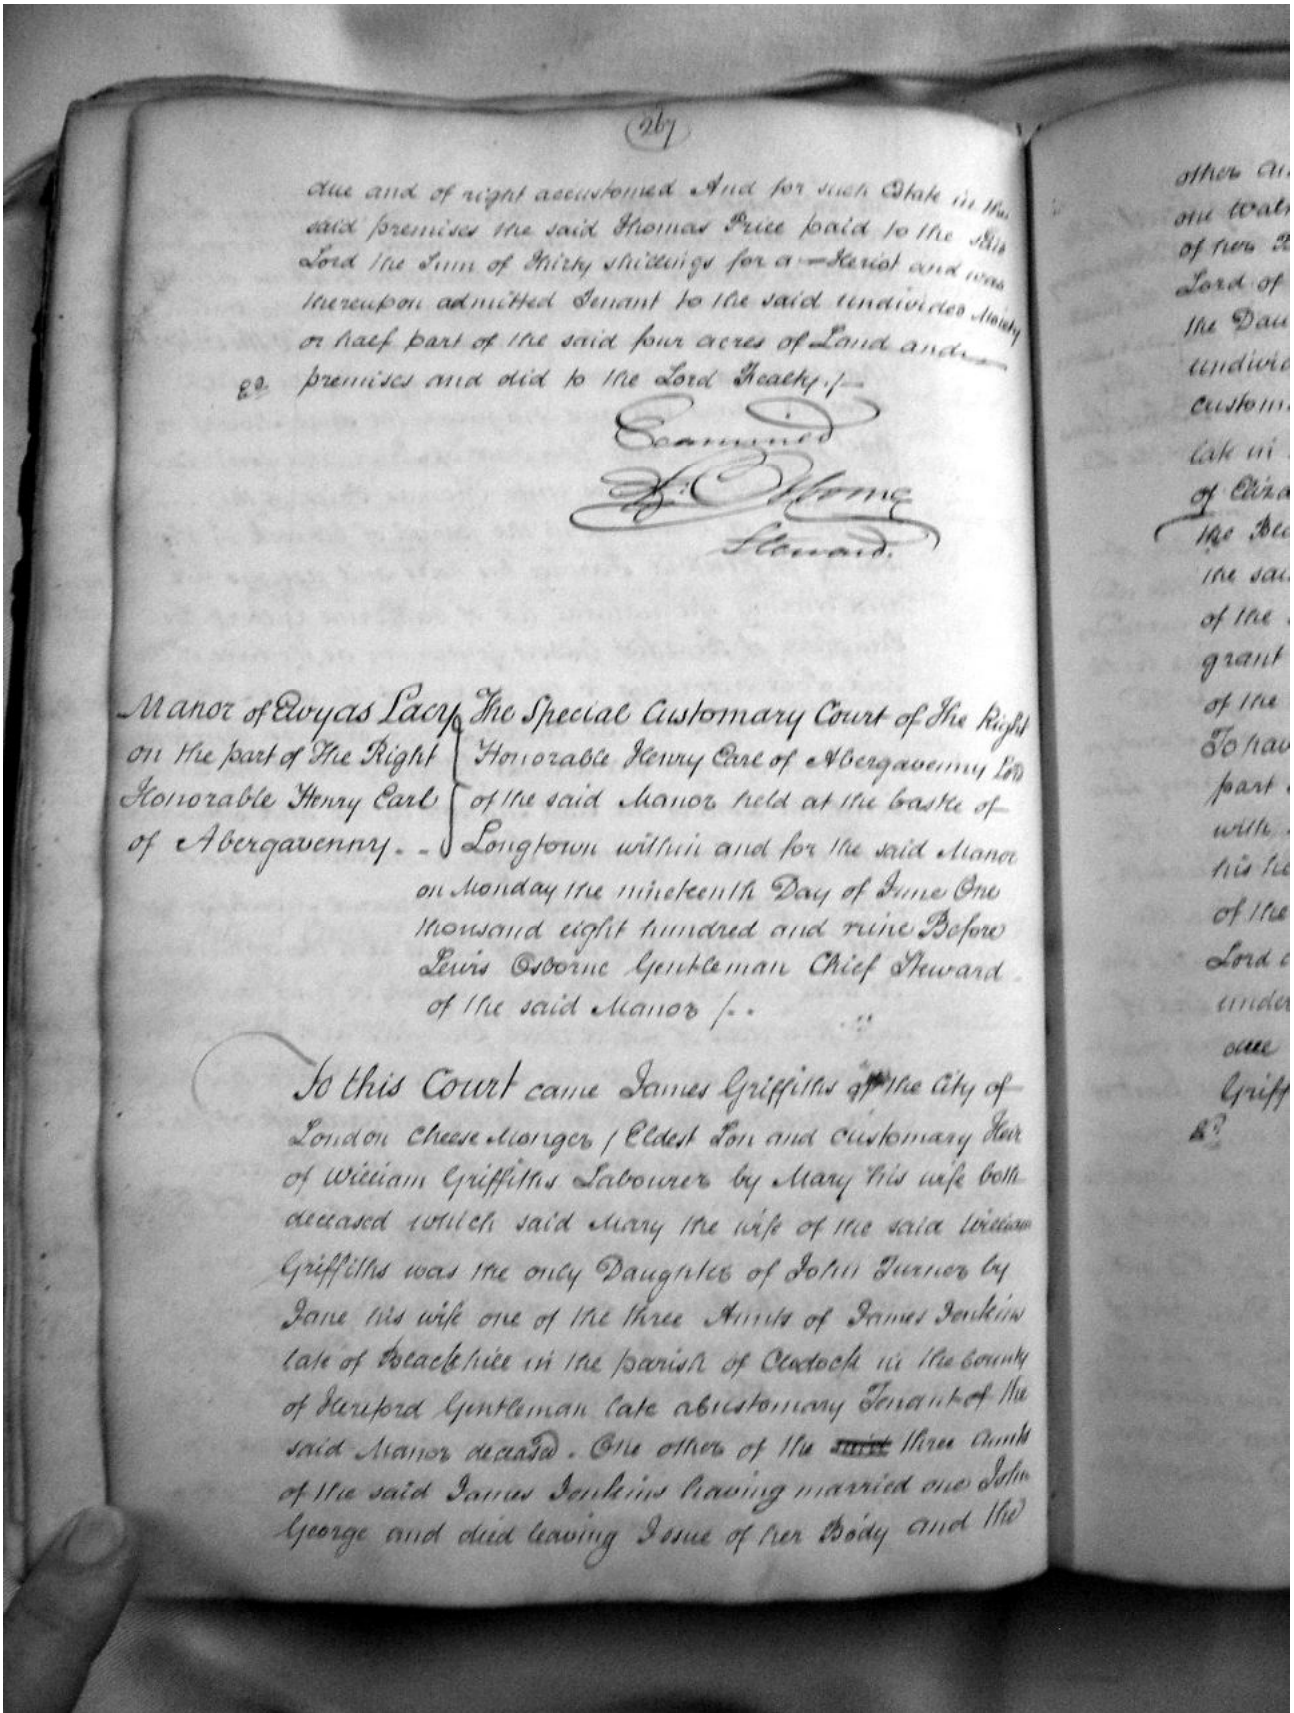 267
due and of right accustomed And for such Estate in the
said premises the said Thomas Price paid to the said
Lord the Sum of Thirty shillings for a Heriot and was
thereupon admitted Tenant to the said undivided Moiety
or half part of the said four acres of Land and
premises and did to the Lord Fealty./
Examined
L: Osborne
Steward.
Manor of Ewyas Lacy
on the part of The Right
Honorable Henry Earl
of Abergavenny. -
The Special Customary Court of The Right
Honorable Henry Earl of Abergavenny Lord
of the said Manor held at the Castle of
Longtown within and for the said Manor
on Monday the nineteenth Day of June One
thousand eight hundred and nine Before
Lewis Osborne Gentleman Chief Steward
of the said Manor /..
To this Court came James Griffiths of the City of
London Cheese Monger / Eldest Son and customary Heir
of William Griffiths Labourer by Mary his wife both
deceased which said Mary the wife of the said William
Griffiths was the only Daughter of John Turner by
Jane his wife one of the three Aunts of James Jenkins
late of Blackhill in the parish of Clodock in the County
of Hereford Gentleman late a Customary Tenant of the
said Manor deceased. One other of the said three Aunts
of the said James Jenkins having married one John
George and died leaving Issue of her Body and the
other
one
of her
Lord of
the
custom
late in
of
the
the
of the
grant
of the
To
part
with,
his
of the
Lord
due
Griff